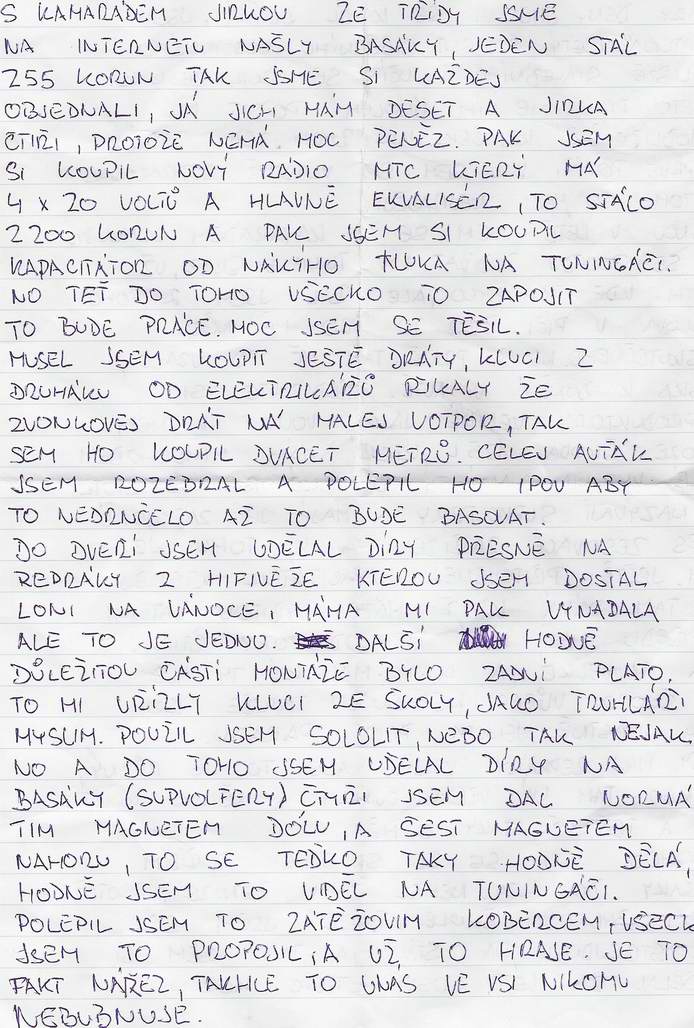 S KAMARÁDEM JIRKOU ZE TŘÍDY JSME
NA INTERNETU NAŠLY BASÁKY, JEDEN STÁL
255 KORUN TAK JSME SI KAŽDEJ
OBJEDNALI, JÁ JICH MÁM DESET A JIRKA
ČTIŘI, PROTOŽE NEMÁ MOC PENĚZ. PAK JSEM
SI KOUPIL NOVÝ RÁDIO MTC KTERÝ MÁ
4 x 20 VOLTŮ A HLAVNĚ EKVALISÉR, TO STÁLO
2200 KORUN A PAK JSEM SI KOUPIL
KAPACITÁTOR OD ŇÁKÝHO KLUKA NA TUNINGÁČI.
NO TEŤ DO TOHO VŠECKO TO ZAPOJIT
TO BUDE PRÁCE. MOC JSEM SE TĚŠIL.
MUSEL JSEM KOUPIT JEŠTĚ DRÁTY, KLUCI Z
DRUHÁKU OD ELEKTRIKÁŘŮ ŘÍKALY ŽE
ZVONKOVEJ DRÁT MÁ MALEJ VOTPOR, TAK
SEM HO KOUPIL DVACET METRŮ. CELEJ AUŤÁK
JSEM ROZEBRAL A POLEPIL HO IPOU ABY
TO NEDRNČELO AŽ TO BUDE BASOVAT.
DO DVEŘÍ JSEM UDĚLAL DÍRY PŘESNĚ NA
REPRÁKY Z HIFIVĚŽE KTEROU JSEM DOSTAL
LONI NA VÁNOCE, MÁMA MI PAK VYNADALA
ALE TO JE JEDNO. DALŠÍ HODNĚ
DŮLEŽITOU ČÁSTÍ MONTÁŽE BYLO ZADNÍ PLATO,
TO MI UŘÍZLY KLUCI ZE ŠKOLY, JAKO TRUHLÁŘI
MYSLIM. POUŽIL JSEM SOLOLIT, NEBO TAK NĚJAK.
NO A DO TOHO JSEM UDĚLAL DÍRY NA
BASÁKY (SUPVOLFERY) ČTYŘI JSEM DAL NORMÁ
TIM MAGNETEM DÓLU, A ŠEST MAGNETEM
NAHORU, TO SE TEĎKO TAKY HODNĚ DĚLÁ,
HODNĚ JSEM TO VIDĚL NA TUNINGÁČI.
POLEPIL JSEM TO ZÁTĚŽOVIM KOBERCEM, VŠECK
JSEM TO PROPOJIL, A UŽ TO HRAJE. JE TO
FAKT NÁŘEZ, TAKHLE TO UNÁS VE VSI NIKOMU
NEBUBNUJE.